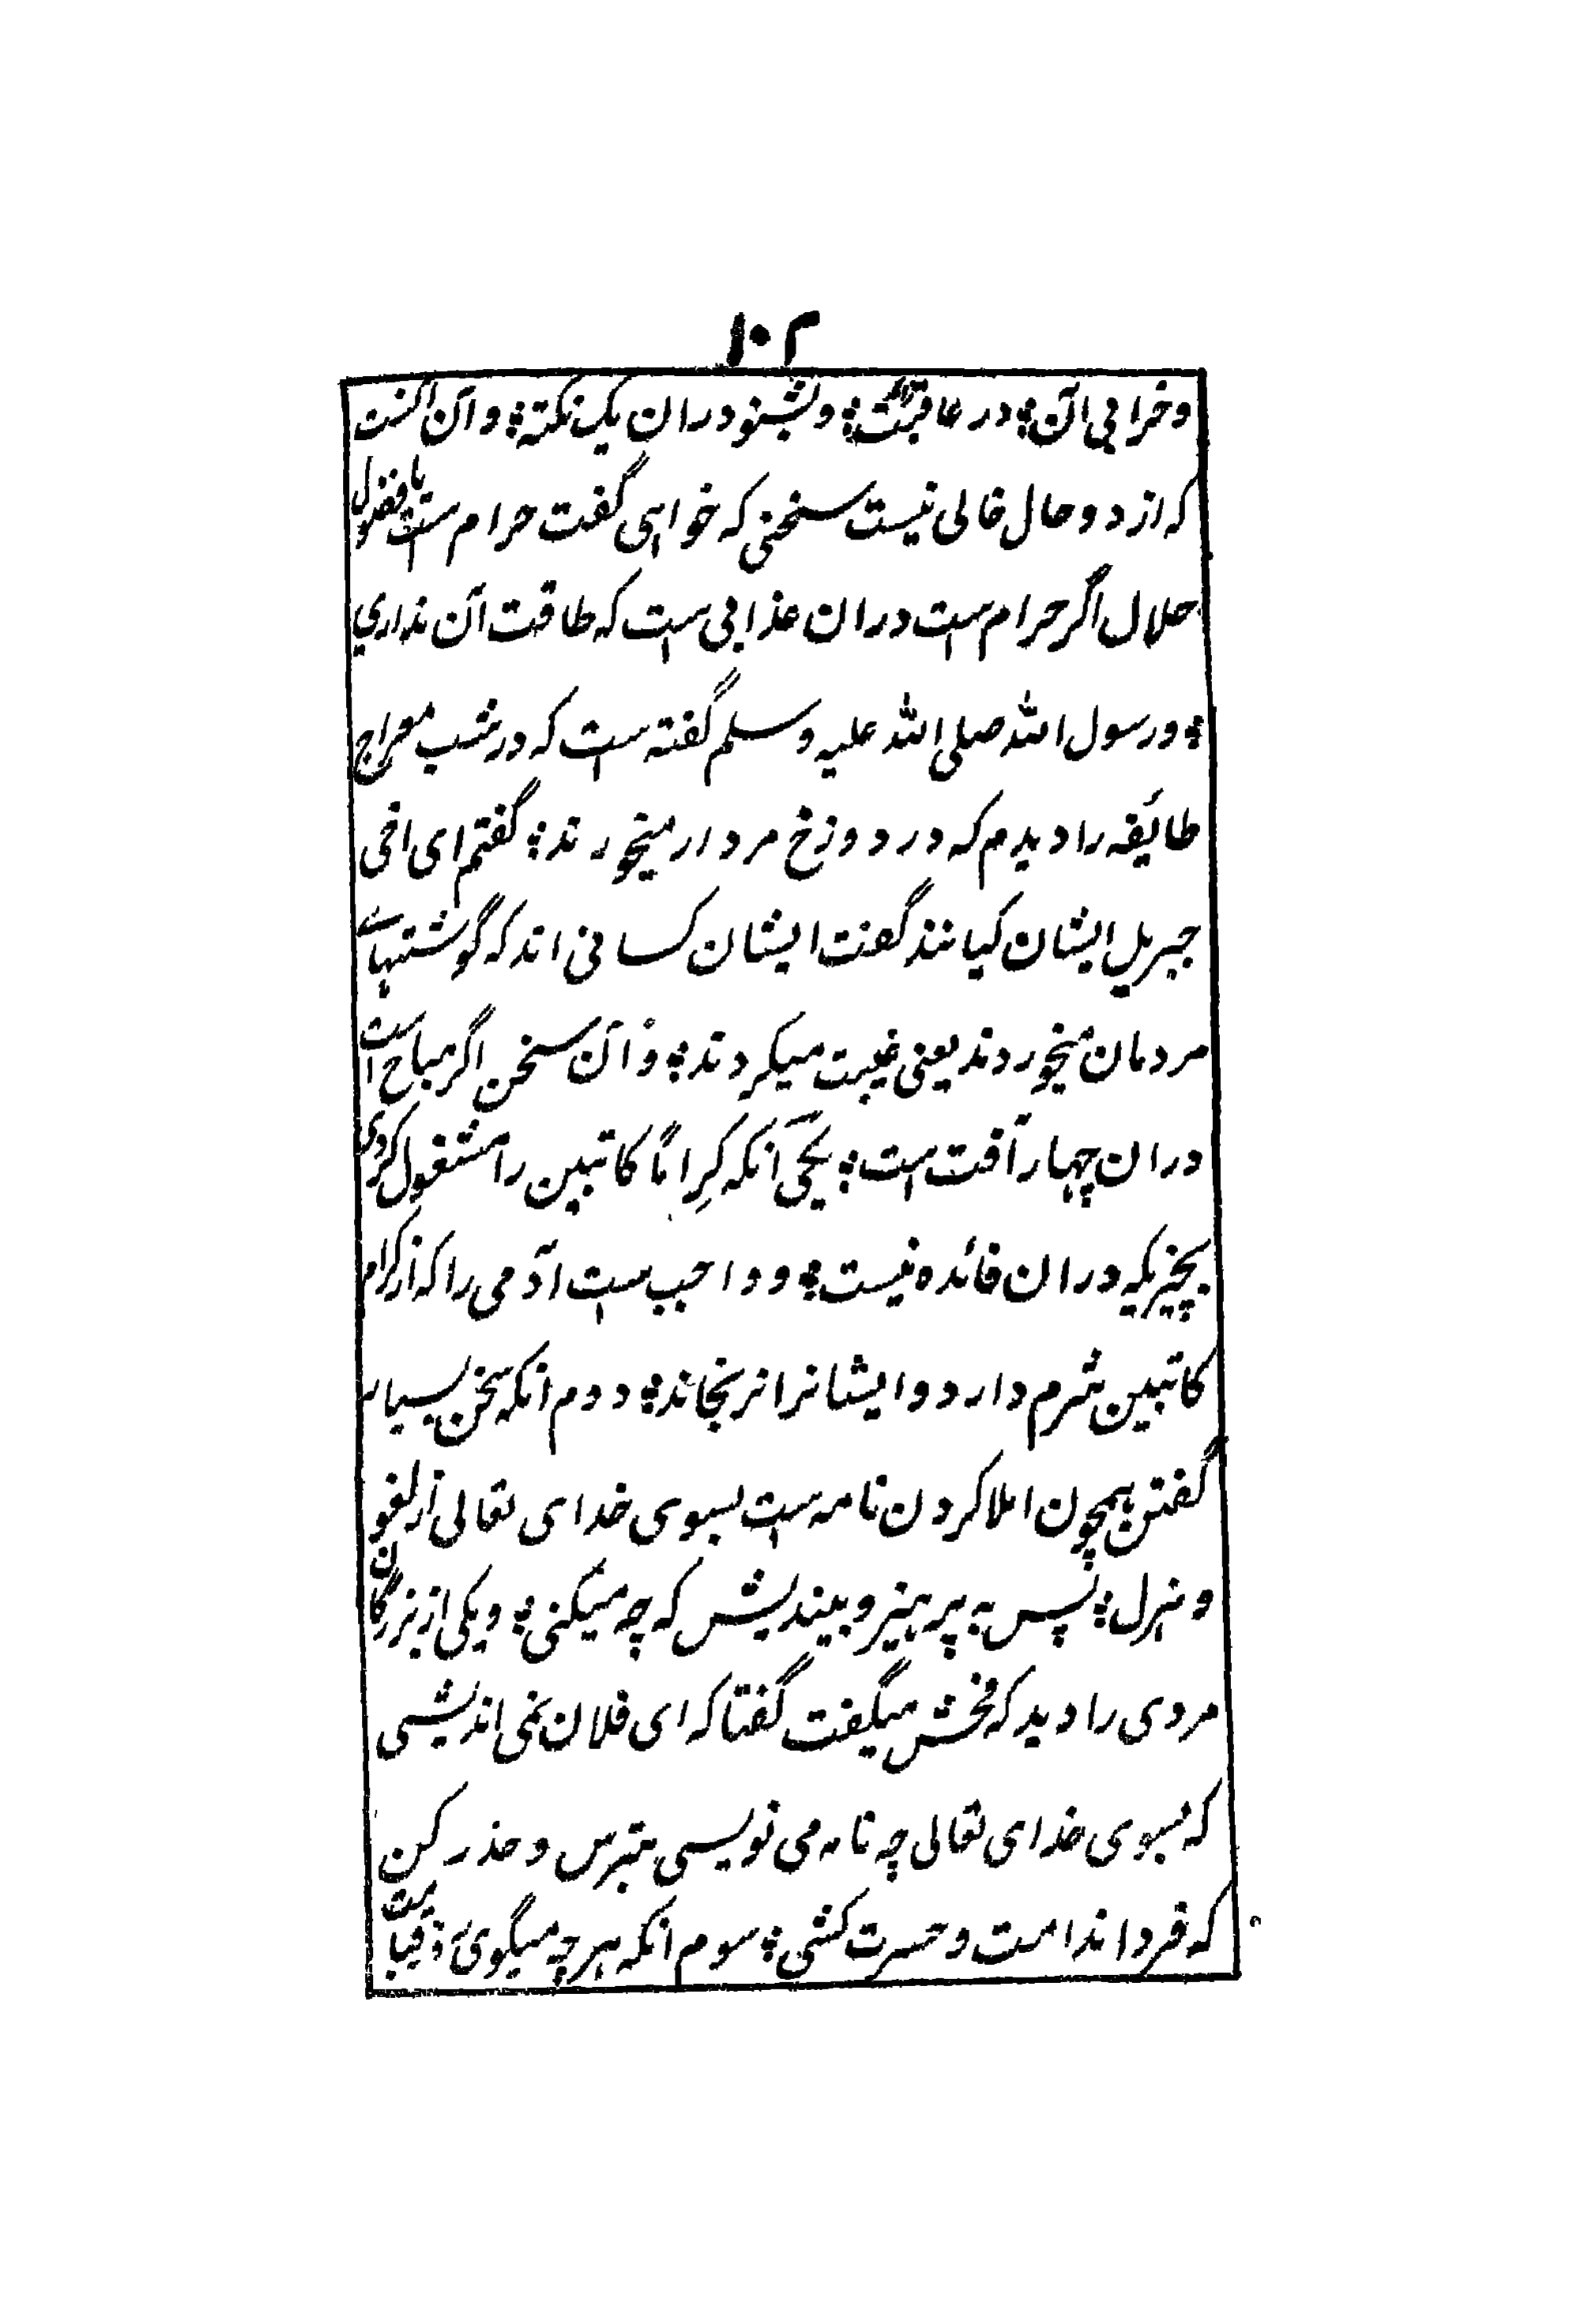 ۱۰۲
و خرابی آن ؛ در عاقبت ؛ و بشنو دران یک نکته ؛ و آن آنست
که از دو حال خالی نیست سخنی که خواهی گفت حرام ست یا فضول
حلال اگر حرام ست دران عذابی ست که طاقت آن نداری
؛ و رسول الله صلی الله علیه و سلم گفته ست که در شب معراج
طائفه را دیدم که در دوزخ مردار میخورند ؛ گفتم ای اخی
جبریل ایشان کیانند گفت ایشان کسانی اند که گوشتهاے
مردمان میخوردند یعنی غیبت میکردند ؛ و آن سخن اگر مباح است
دران چهار آفت است ؛ یکی آنکه کِراماً کاتبین را مشغول کردی
بچیزیکه دران فائده نیست ؛ و واجب ست آدمی را که از کرام
کاتبین شرم دارد و ایشانرا نرنجاند ؛ دوم آنکه سخن بسیار
گفتن همچون املا کردن نامه ست بسوی خدای تعالی از لغو
و هزل ؛ پس به پرهیز و بیندیش که چه میکنی ؛ و یکی از بزرگان
مردی را دید که فحش میگفت گفتا که ای فلان نمی اندیشی
که بسوی خدای تعالی چه نامه می نویسی بترس و حذر کن
که فردا ندامت و حسرت کشی ؛ سوم آنکه هرچه میگوی قیامت